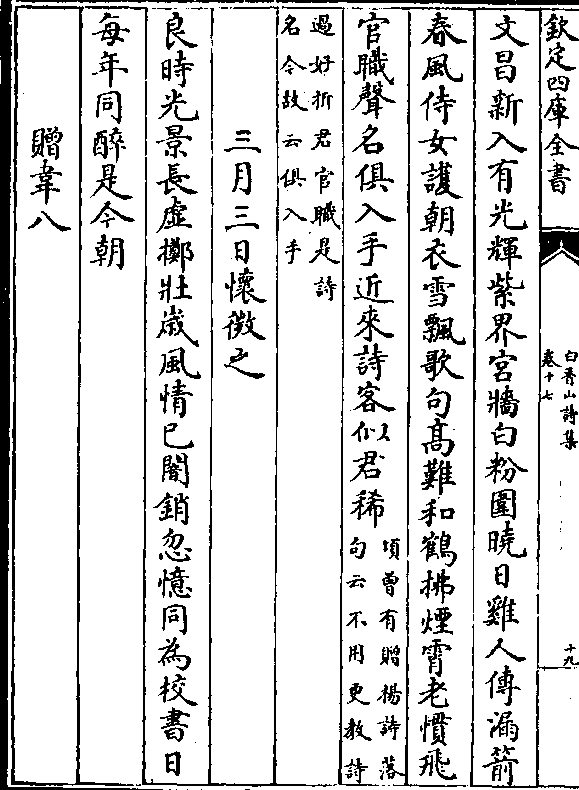 欽定四庫全書
白香山詩集
卷十七
十九
文昌新入有光輝紫界宮牆白粉圍曉日雞人傳漏箭
春風侍女護朝衣雪飄歌句髙難和鶴拂煙霄老慣飛
官職聲名俱入手近來詩客似君稀頃曽有贈楊詩落句云不用更教詩
過好折君官職是詩名今故云俱入手
三月三日懷微之
良時光景長虛擲壯歲風情已闇銷忽憶同為校書日
每年同醉是今朝
贈韋八